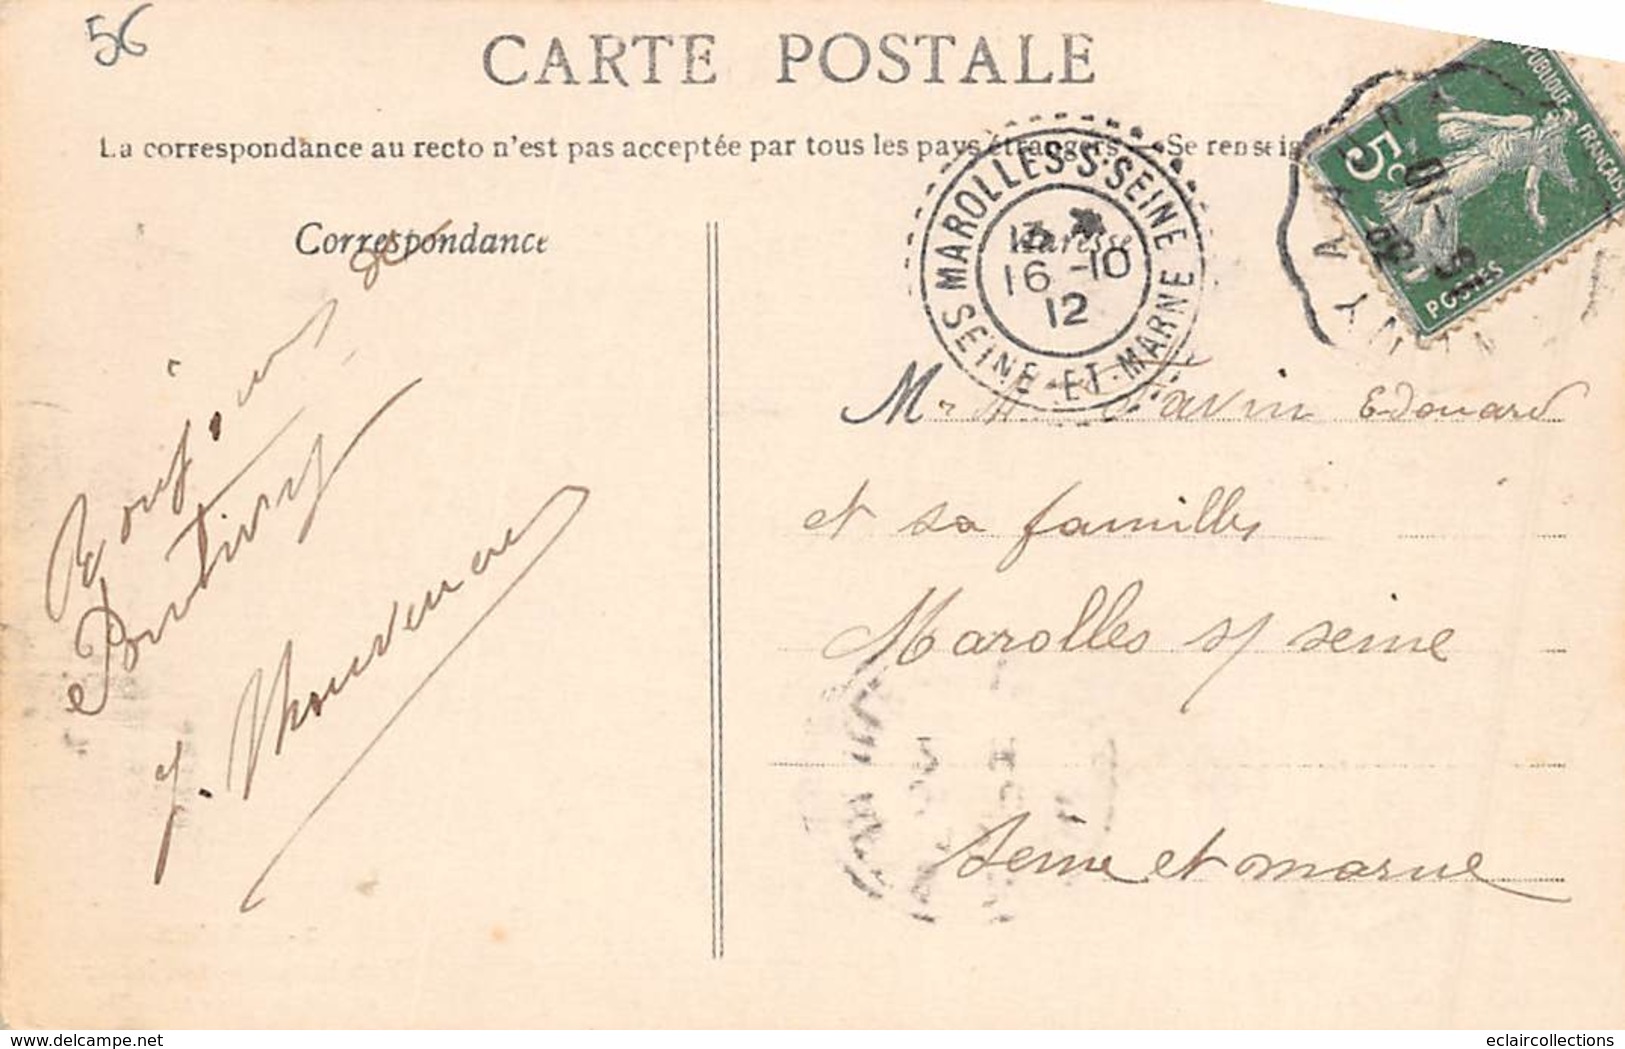 56
CARTE POSTALE
La correspondance au recto n'est pas acceptée par tous les pays étrangers. Se renseig
Correspondance
Adresse
MAROLLES-S-SEINE
13
16 -10
12
SEINE-ET-MARNE
RÉPUBLIQUE FRANÇAISE
5c
POSTES
Bonjour de
Pontivy
J. Thouvenin
M. Favin Edouard
et sa familles
Marolles s/ seine
seine et marne
eclaircollections